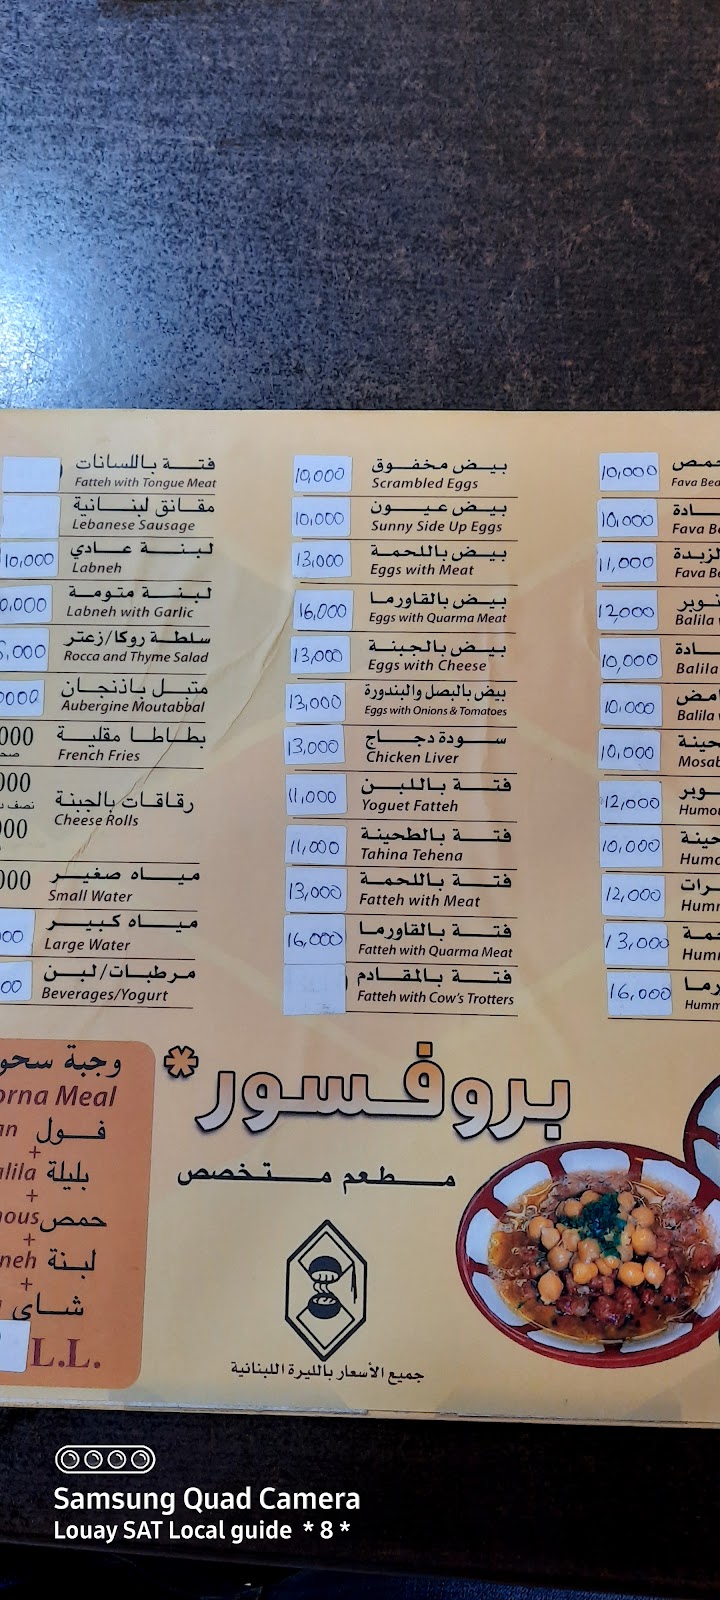 فتة باللسانات
Fatteh with Tongue Meat
مقانق لبنانية
Lebanese Sausage
10,000 لبنة عادي
Labneh
0,000 لبنة متومة
Labneh with Garlic
5,000 سلطة روكا/زعتر
Rocca and Thyme Salad
0000 متبل باذنجان
Aubergine Moutabbal
000 بطاطا مقلية
French Fries
000
رقاقات بالجبنة
Cheese Rolls
000
000 مياه صغير
Small Water
000 مياه كبير
Large Water
00 مرطبات/لبن
Beverages/Yogurt
10,000 بيض مخفوق
Scrambled Eggs
10,000 بيض عيون
Sunny Side Up Eggs
13,000 بيض باللحمة
Eggs with Meat
16,000 بيض بالقاورما
Eggs with Quarma Meat
13,000 بيض بالجبنة
Eggs with Cheese
13,000 بيض بالبصل والبندورة
Eggs with Onions & Tomatoes
13,000 سودة دجاج
Chicken Liver
11,000 فتة باللبن
Yoguet Fatteh
11,000 فتة بالطحينة
Tahina Tehena
13,000 فتة باللحمة
Fatteh with Meat
16,000 فتة بالقاورما
Fatteh with Quarma Meat
فتة بالمقادم
Fatteh with Cow's Trotters
10,000 حمص
Fava Bea
10,000 ادة
Fava Be
11,000 لزبدة
Fava Be
12,000 نوبر
Balila
10,000 ادة
Balila
10,000 امض
Balila
10,000 حينة
Mosab
12,000 وبر
Humou
10,000 حينة
Humo
12,000 رات
Humm
13,000 حمة
Hum
16,000 رما
Humm
وجبة سحو
orna Meal
an فول
+
alila بليلة
+
nous حمص
+
neh لبنة
+
شاي
L.L.
بروفسور*
مطعم متخصص
جميع الأسعار بالليرة اللبنانية
Samsung Quad Camera
Louay SAT Local guide * 8 *